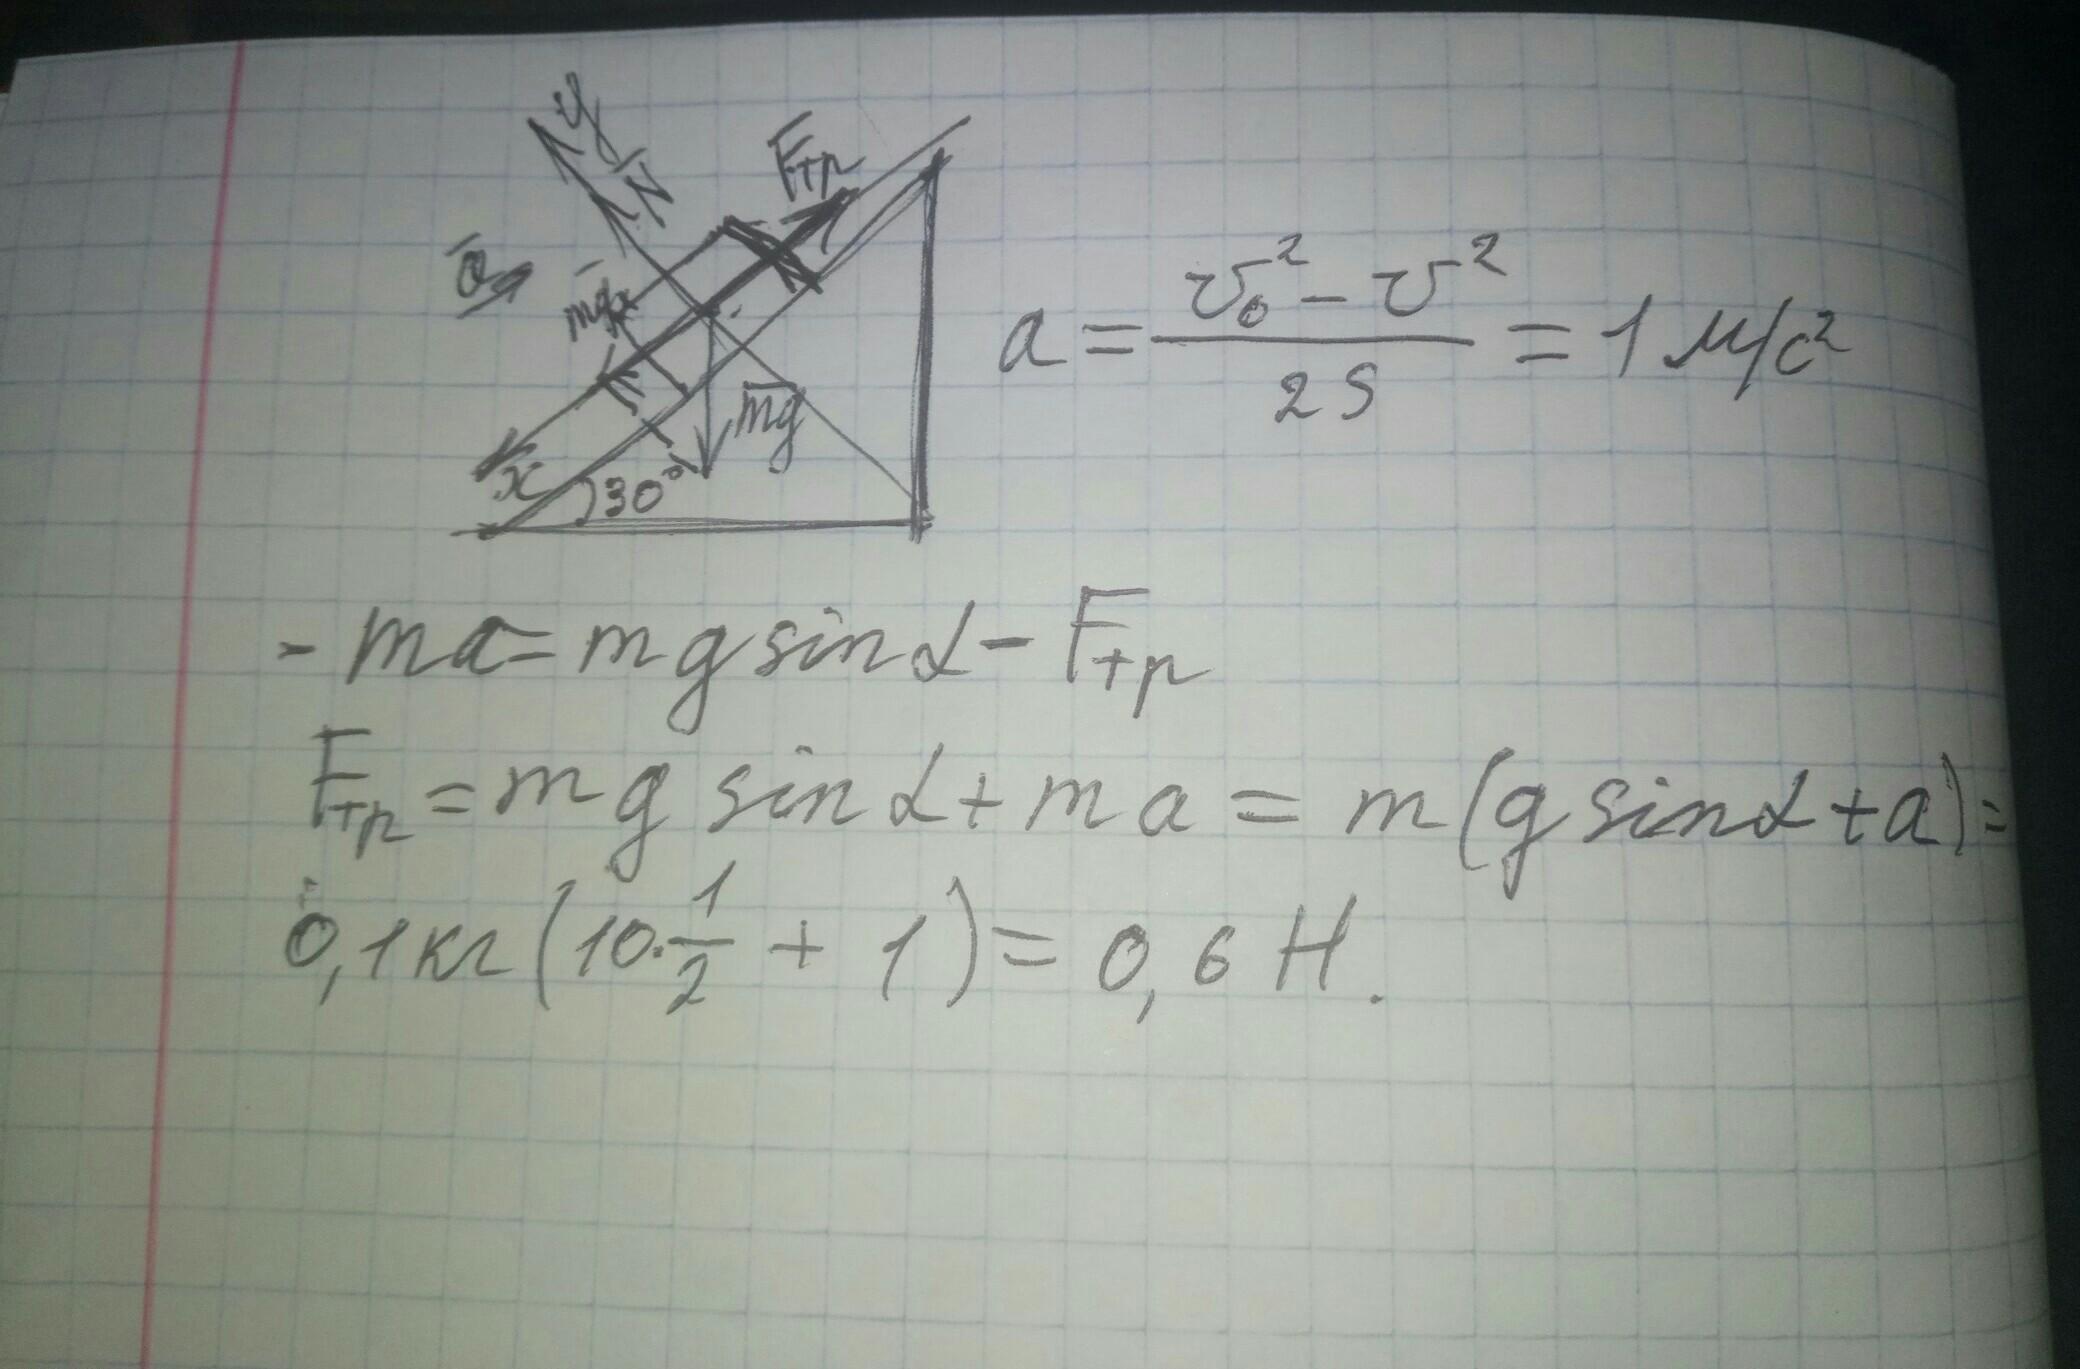 y
N
Fтр
a
mgx
mg
x
30°
a = (v₀² - v²) / 2S = 1 м/с²
- ma = mg sin α - Fтр
Fтр = mg sin α + ma = m(g sin α + a) =
0,1 кг (10 · 1/2 + 1) = 0,6 Н.